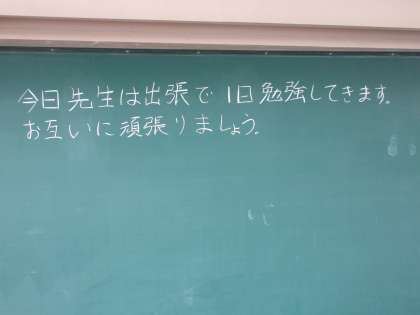 今日先生は出張で1日勉強してきます。
お互いに頑張りましょう。